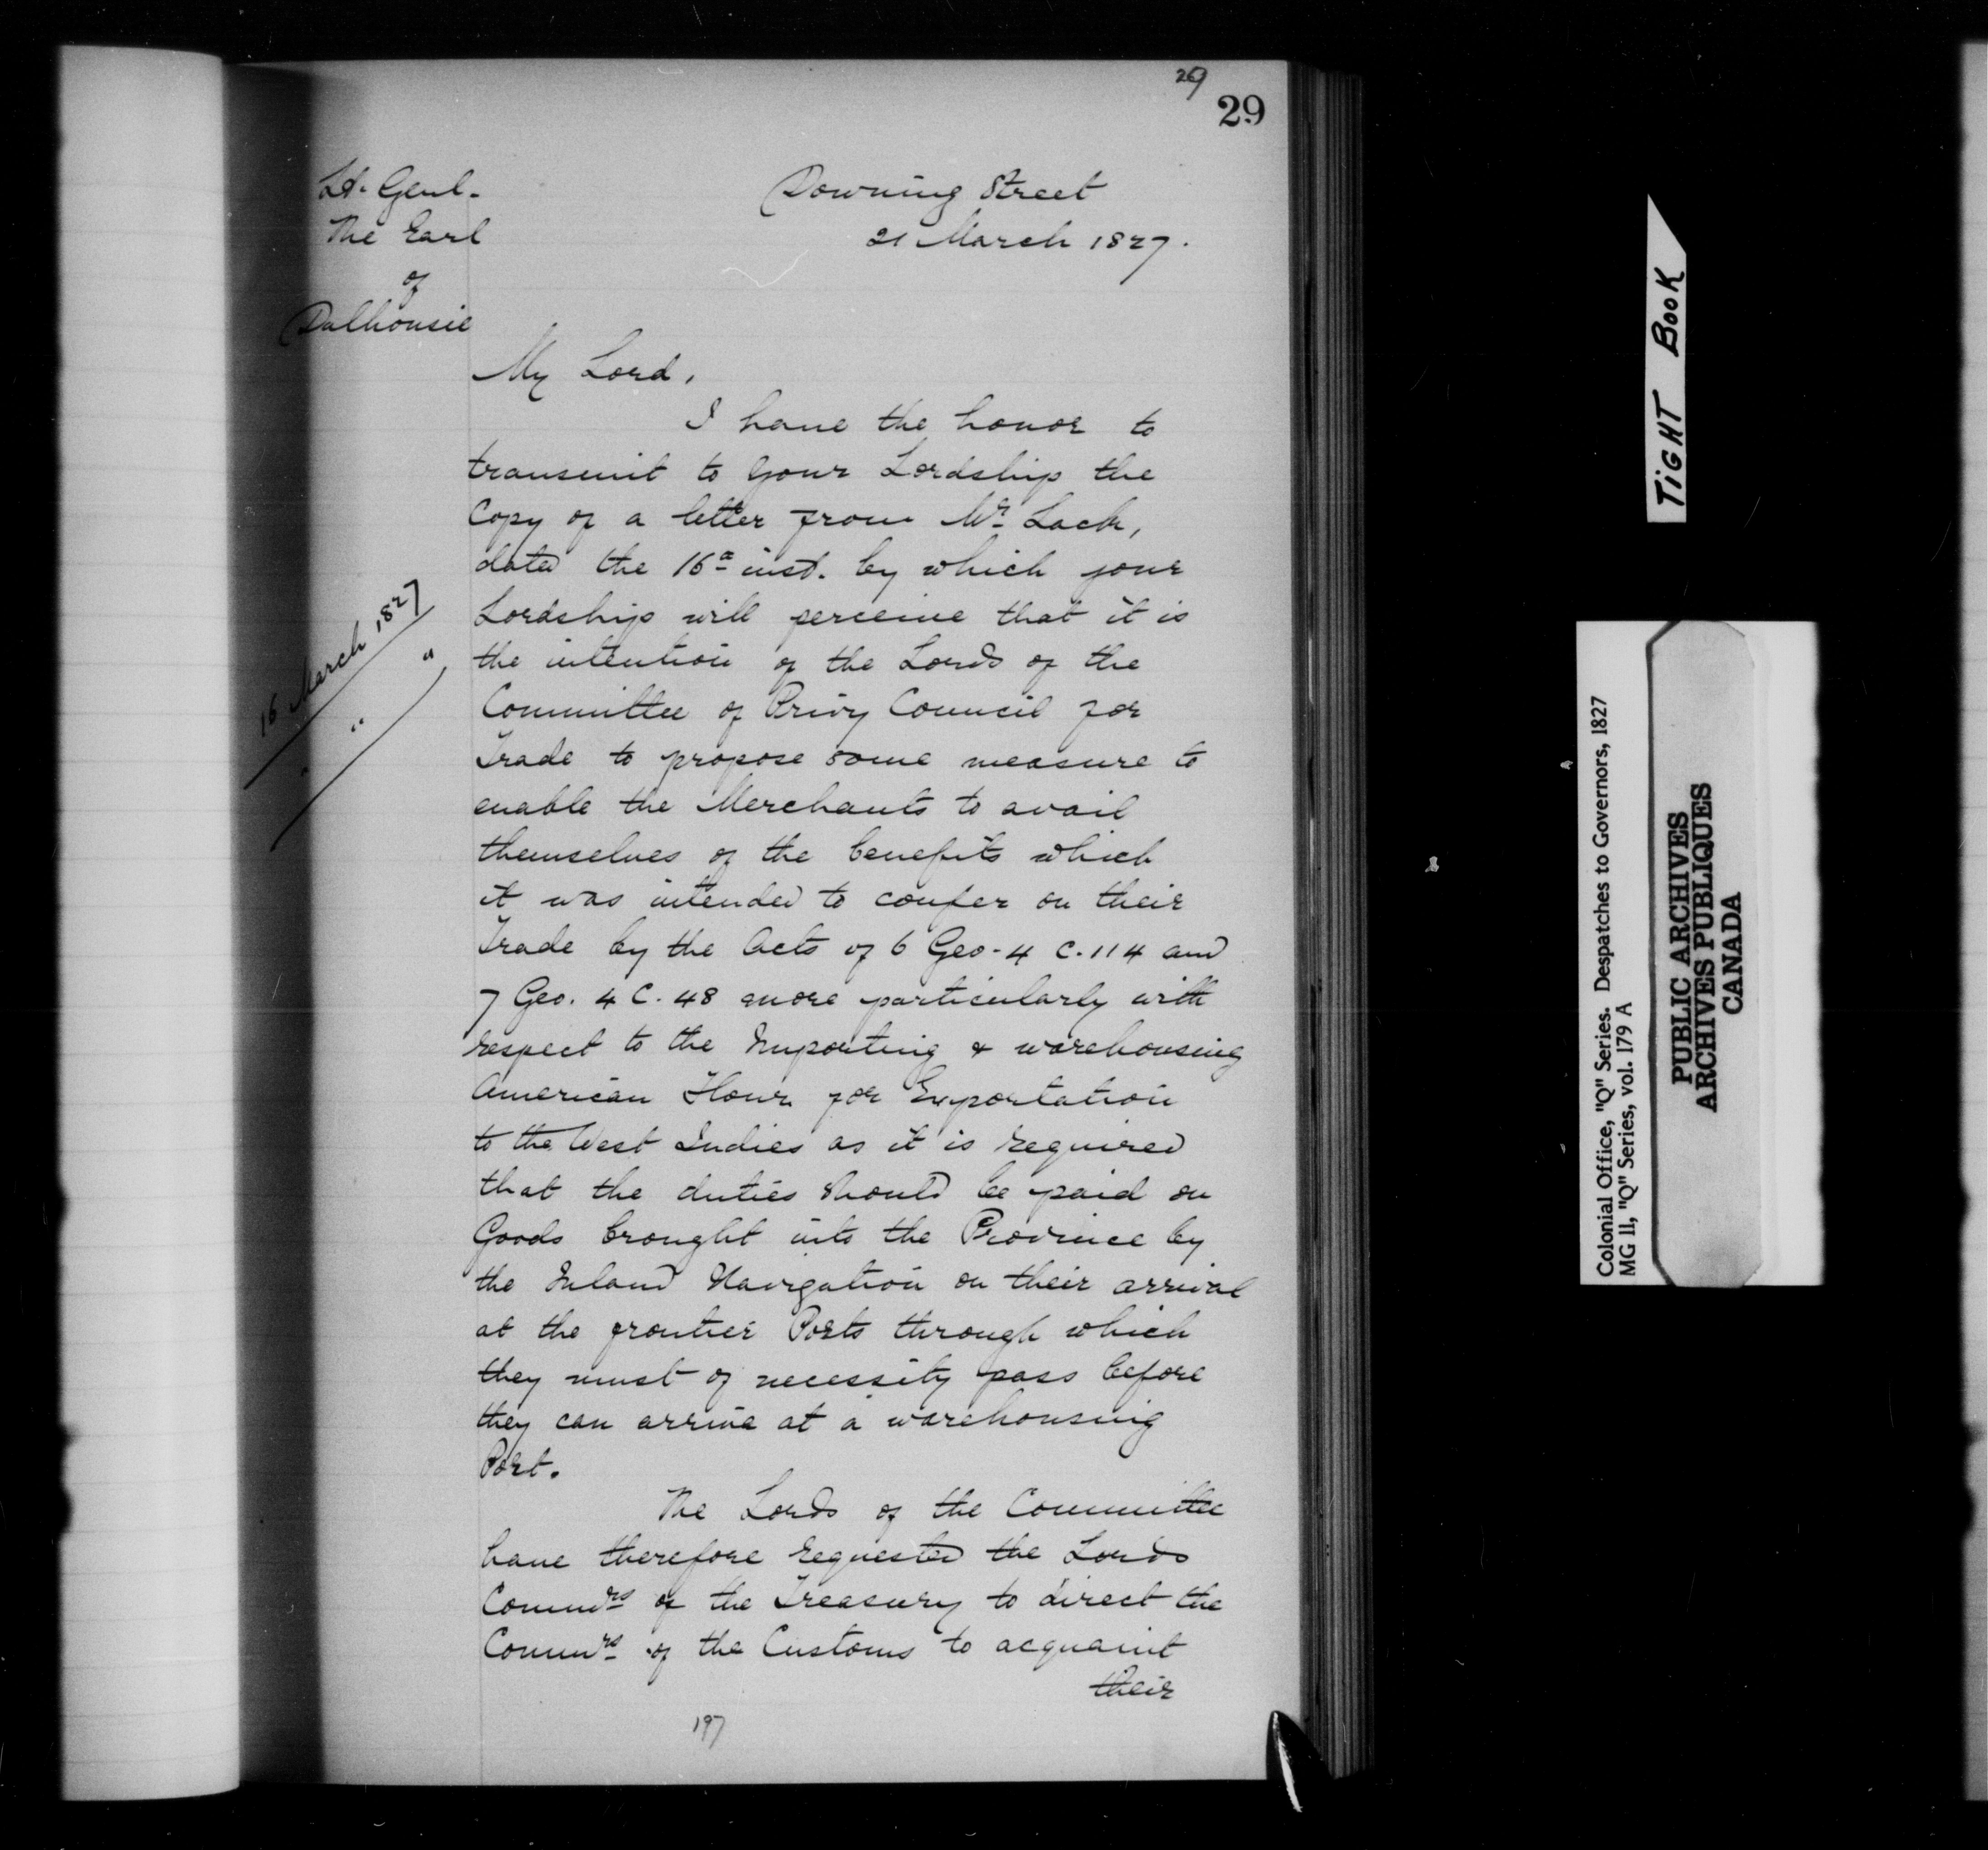 269
29
Lt. Genl.
The Earl
of
Dalhousie
Downing Street
21 March 1827.
My Lord,
I have the honor to
transmit to your Lordship the
Copy of a letter from Mr. Lack,
dated the 16th inst. by which your
Lordship will perceive that it is
the intention of the Lords of the
Committee of Privy Council for
Trade to propose some measure to
enable the Merchants to avail
themselves of the benefits which
it was intended to confer on their
Trade by the Acts of 6 Geo. 4 C. 114 and
7 Geo. 4 C. 48 more particularly with
respect to the Importing & warehousing
American Flour for Exportation
to the West Indies as it is required
that the duties should be paid on
Goods brought into the Province by
the Inland Navigation on their arrival
at the frontier Ports through which
they must of necessity pass before
they can arrive at a warehousing
Port.
The Lords of the Committee
have therefore requested the Lords
Commrs of the Treasury to direct the
Commrs of the Customs to acquaint
their
16 March 1827
" "
197
TIGHT BOOK
Colonial Office, "Q" Series. Despatches to Governors, 1827
MG 11, "Q" Series, vol. 179 A
PUBLIC ARCHIVES
ARCHIVES PUBLIQUES
CANADA